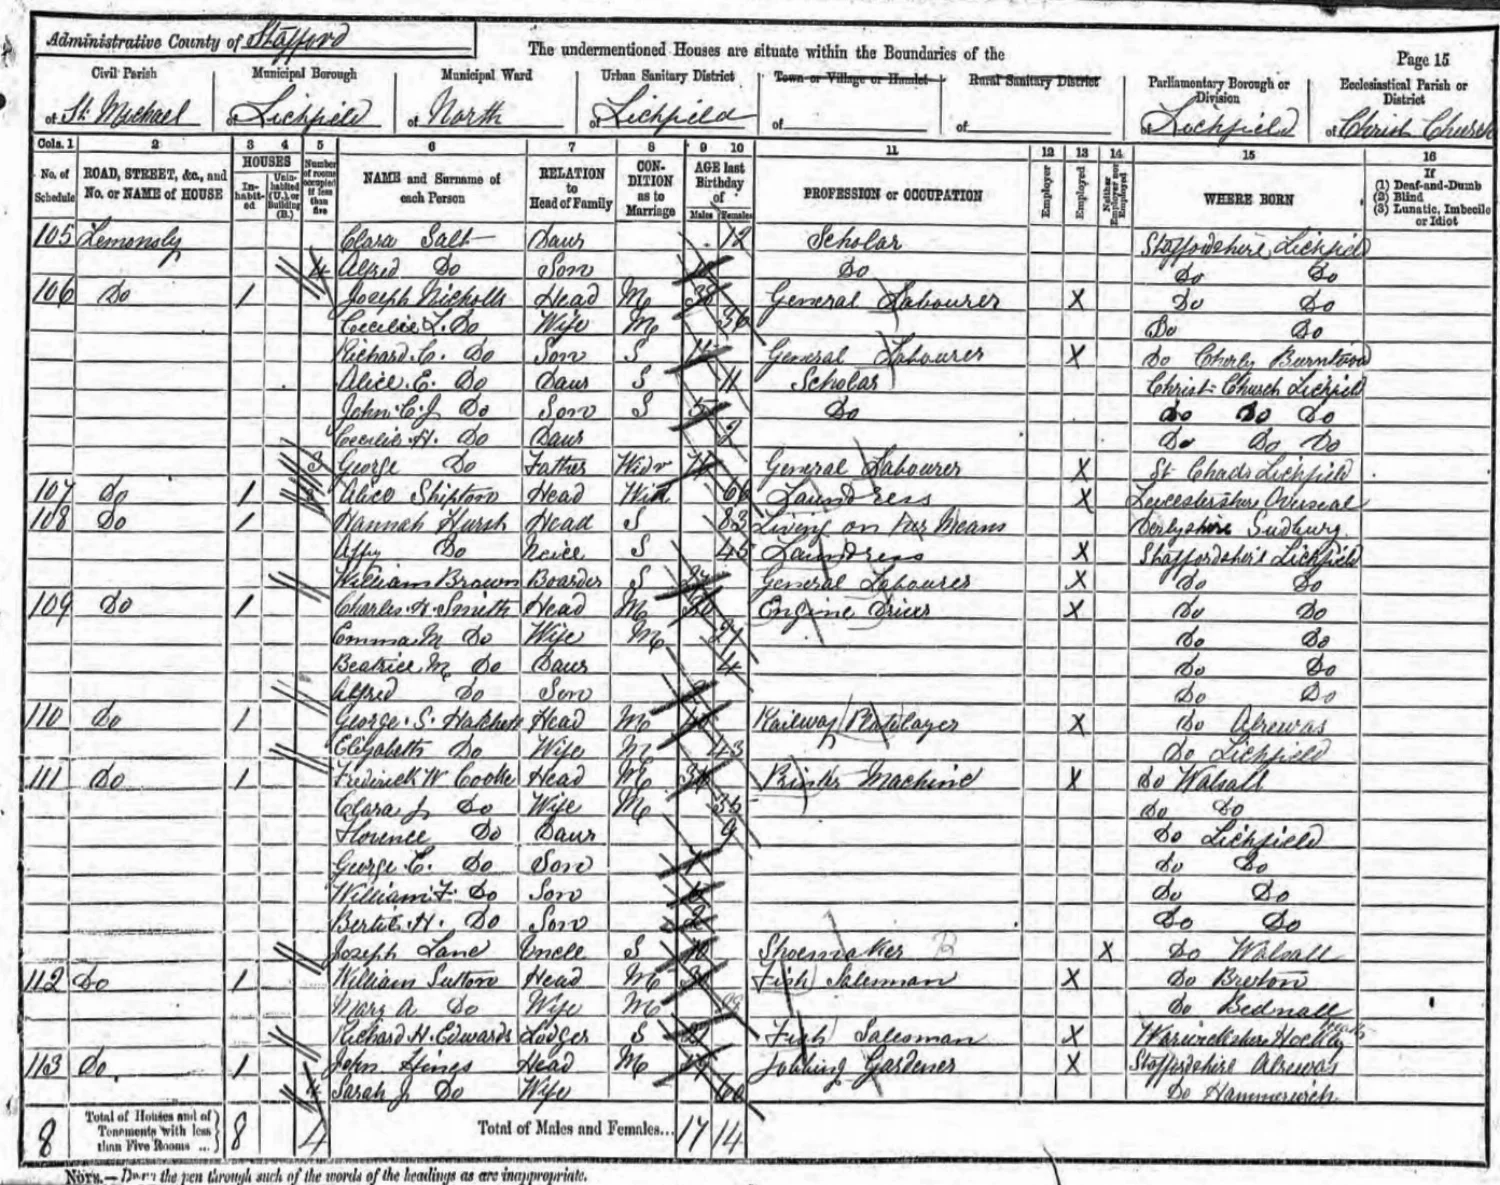 Administrative County of Stafford
The undermentioned Houses are situate within the Boundaries of the
Page 15
Civil Parish
Municipal Borough
Municipal Ward
Urban Sanitary District
Town or Village or Hamlet
Rural Sanitary District
Parliamentary Borough or Division
Ecclesiastical Parish or District
of St. Michael
of Lichfield
of North
of Lichfield
of
of
of Lichfield
of Christ Church
Cols. 1 2 3 4 5 6 7 8 9 10 11 12 13 14 15 16
No. of Schedule
ROAD, STREET, &c., and No. or NAME of HOUSE
HOUSES
In-habit-ed
Unin-habited (U.), or Building (B.)
Number of rooms occupied if less than five
NAME and Surname of each Person
RELATION to Head of Family
CON-DITION as to Marriage
AGE last Birthday of
Males Females
PROFESSION or OCCUPATION
Employer
Employed
Neither Employer nor Employed
WHERE BORN
If
(1) Deaf-and-Dumb
(2) Blind
(3) Lunatic, Imbecile or Idiot
105 Clara Salt Daur 12 Scholar Staffordshire Lichfield
4 Alfred Do Son Do Do Do
106 Do 1 Joseph Nicholls Head M General Labourer X Do Do
Cecilie L. Do Wife M 36 Do Do
Richard C. Do Son S General Labourer X Do Burntwood
Alice E. Do Daur S 11 Scholar Christ Church Lichfield
John C. J. Do Son S 5 Do Do Do Do
Cecilie H. Do Daur 2 Do Do Do
3 George Do Father Widr General Labourer X St Chads Lichfield
107 Do 1 Alice Shipton Head Wid 66 Laundress X Leicestershire Overseal
108 Do 1 Hannah Hurst Head S 83 Living on Means Derbyshire Sudbury
Do Neice S 45 Laundress X Staffordshire Lichfield
William Brown Boarder S General Labourer X Do Do
109 Do 1 Charles H. Smith Head M Engine Driver X Do Do
Emma M Do Wife M Do Do
Beatrice M Do Daur 4 Do Do
Alfred Do Son Do Do
110 Do 1 George S. Head M Railway Platelayer X Do Alrewas
Elizabeth Do Wife M 43 Do Lichfield
111 Do 1 Frederick W Cooke Head M Printer Machine X Do Walsall
Clara J Do Wife M 35 Do Do
Florence Do Daur 9 Do Lichfield
George C. Do Son Do Do
William F. Do Son Do Do
Bertie H. Do Son 2 Do Do
Joseph Lane Uncle S Shoemaker X Do Walsall
112 Do 1 William Sutton Head M Fish Salesman X Do
Mary A Do Wife M Do Bednall
Richard H. Edwards Lodger S Fish Salesman X Warwickshire
113 Do 1 John Hines Head M Jobbing Gardener X Staffordshire Alrewas
4 Sarah J Do Wife 60 Do Hammerwich
8 Total of Houses and of Tenements with less than Five Rooms ... 8 4 Total of Males and Females... 17 14
NOTE.—Draw the pen through such of the words of the headings as are inappropriate.